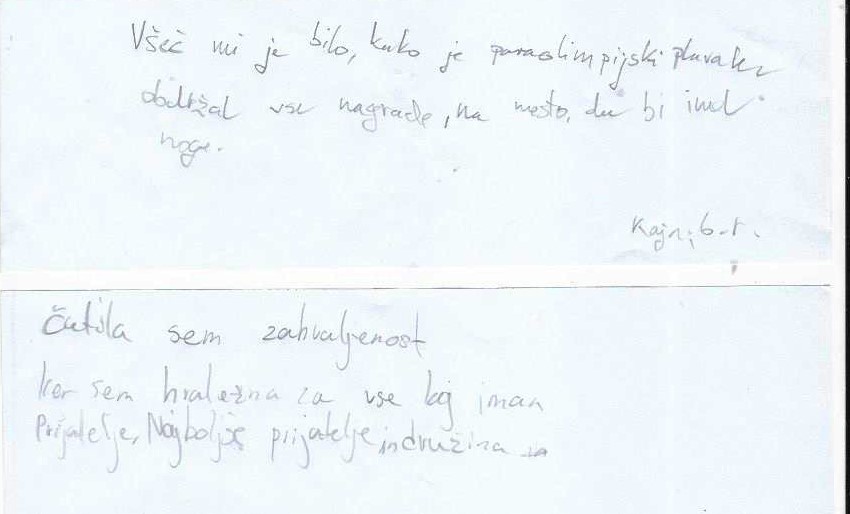 Všeč mi je bilo, kako je paraolimpijski plavalec
obdržal vse nagrade, na mesto, da bi imel
noge.
Kajn, 6. r.
Čutila sem zahvaljenost
ker sem hvaležna za vse kaj imam
Prijatelje, Najboljše prijatelje in družina za